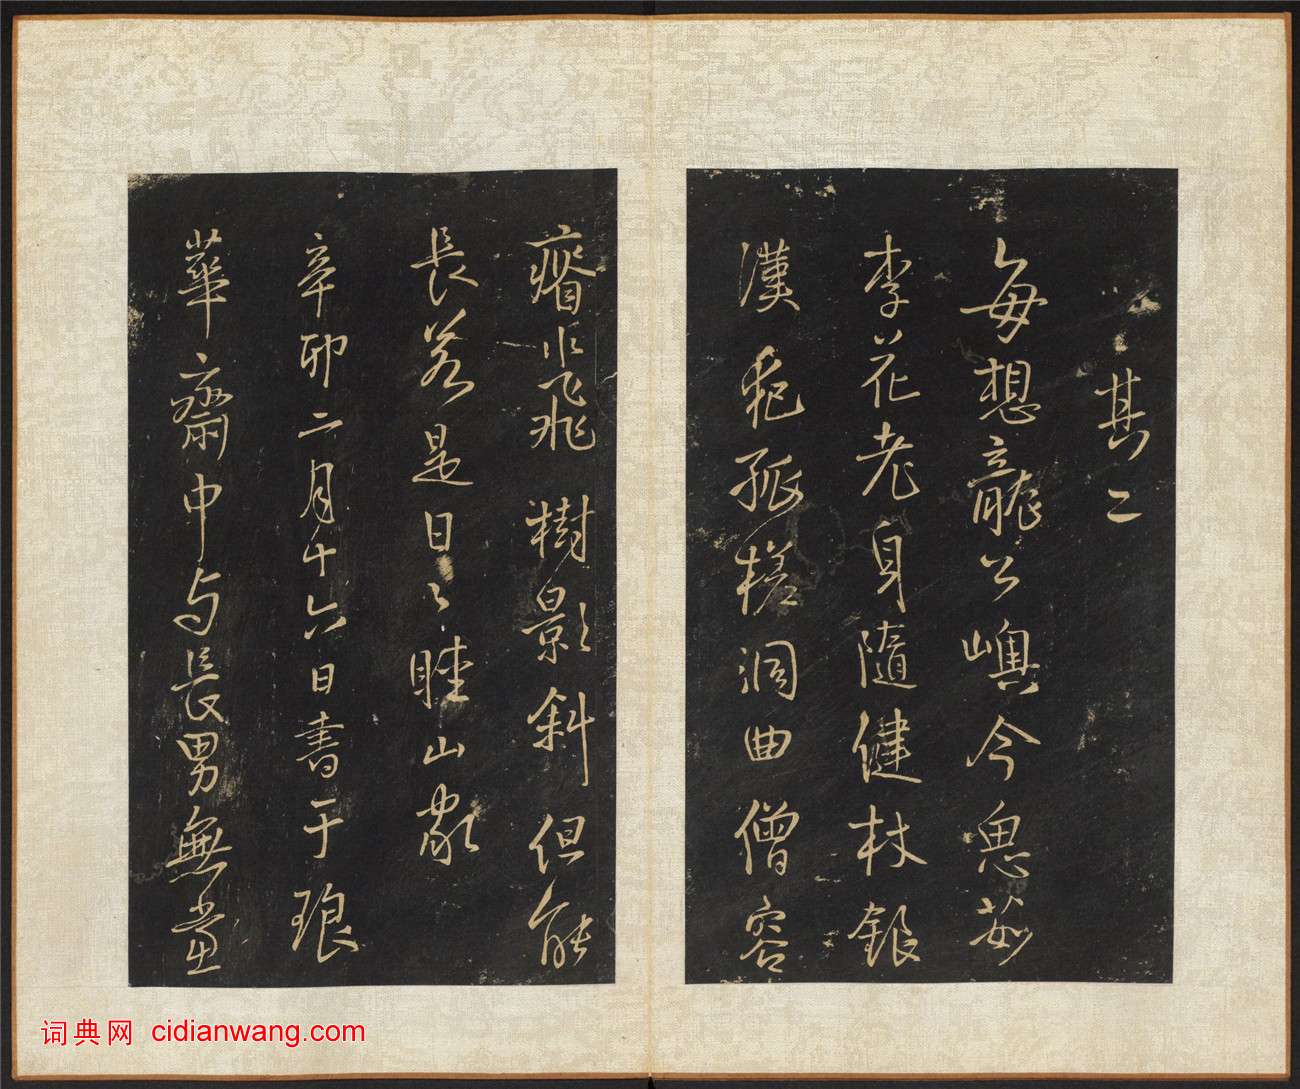 其二
每想龍公嶼今思茹
李花老身隨健杖銀
漢犯孤槎洞曲僧容
瘠水飛樹影斜但能
長若是日日睡山家
辛卯二月十六日書于琅
華齋中与長男無黨
词典网 cidianwang.com